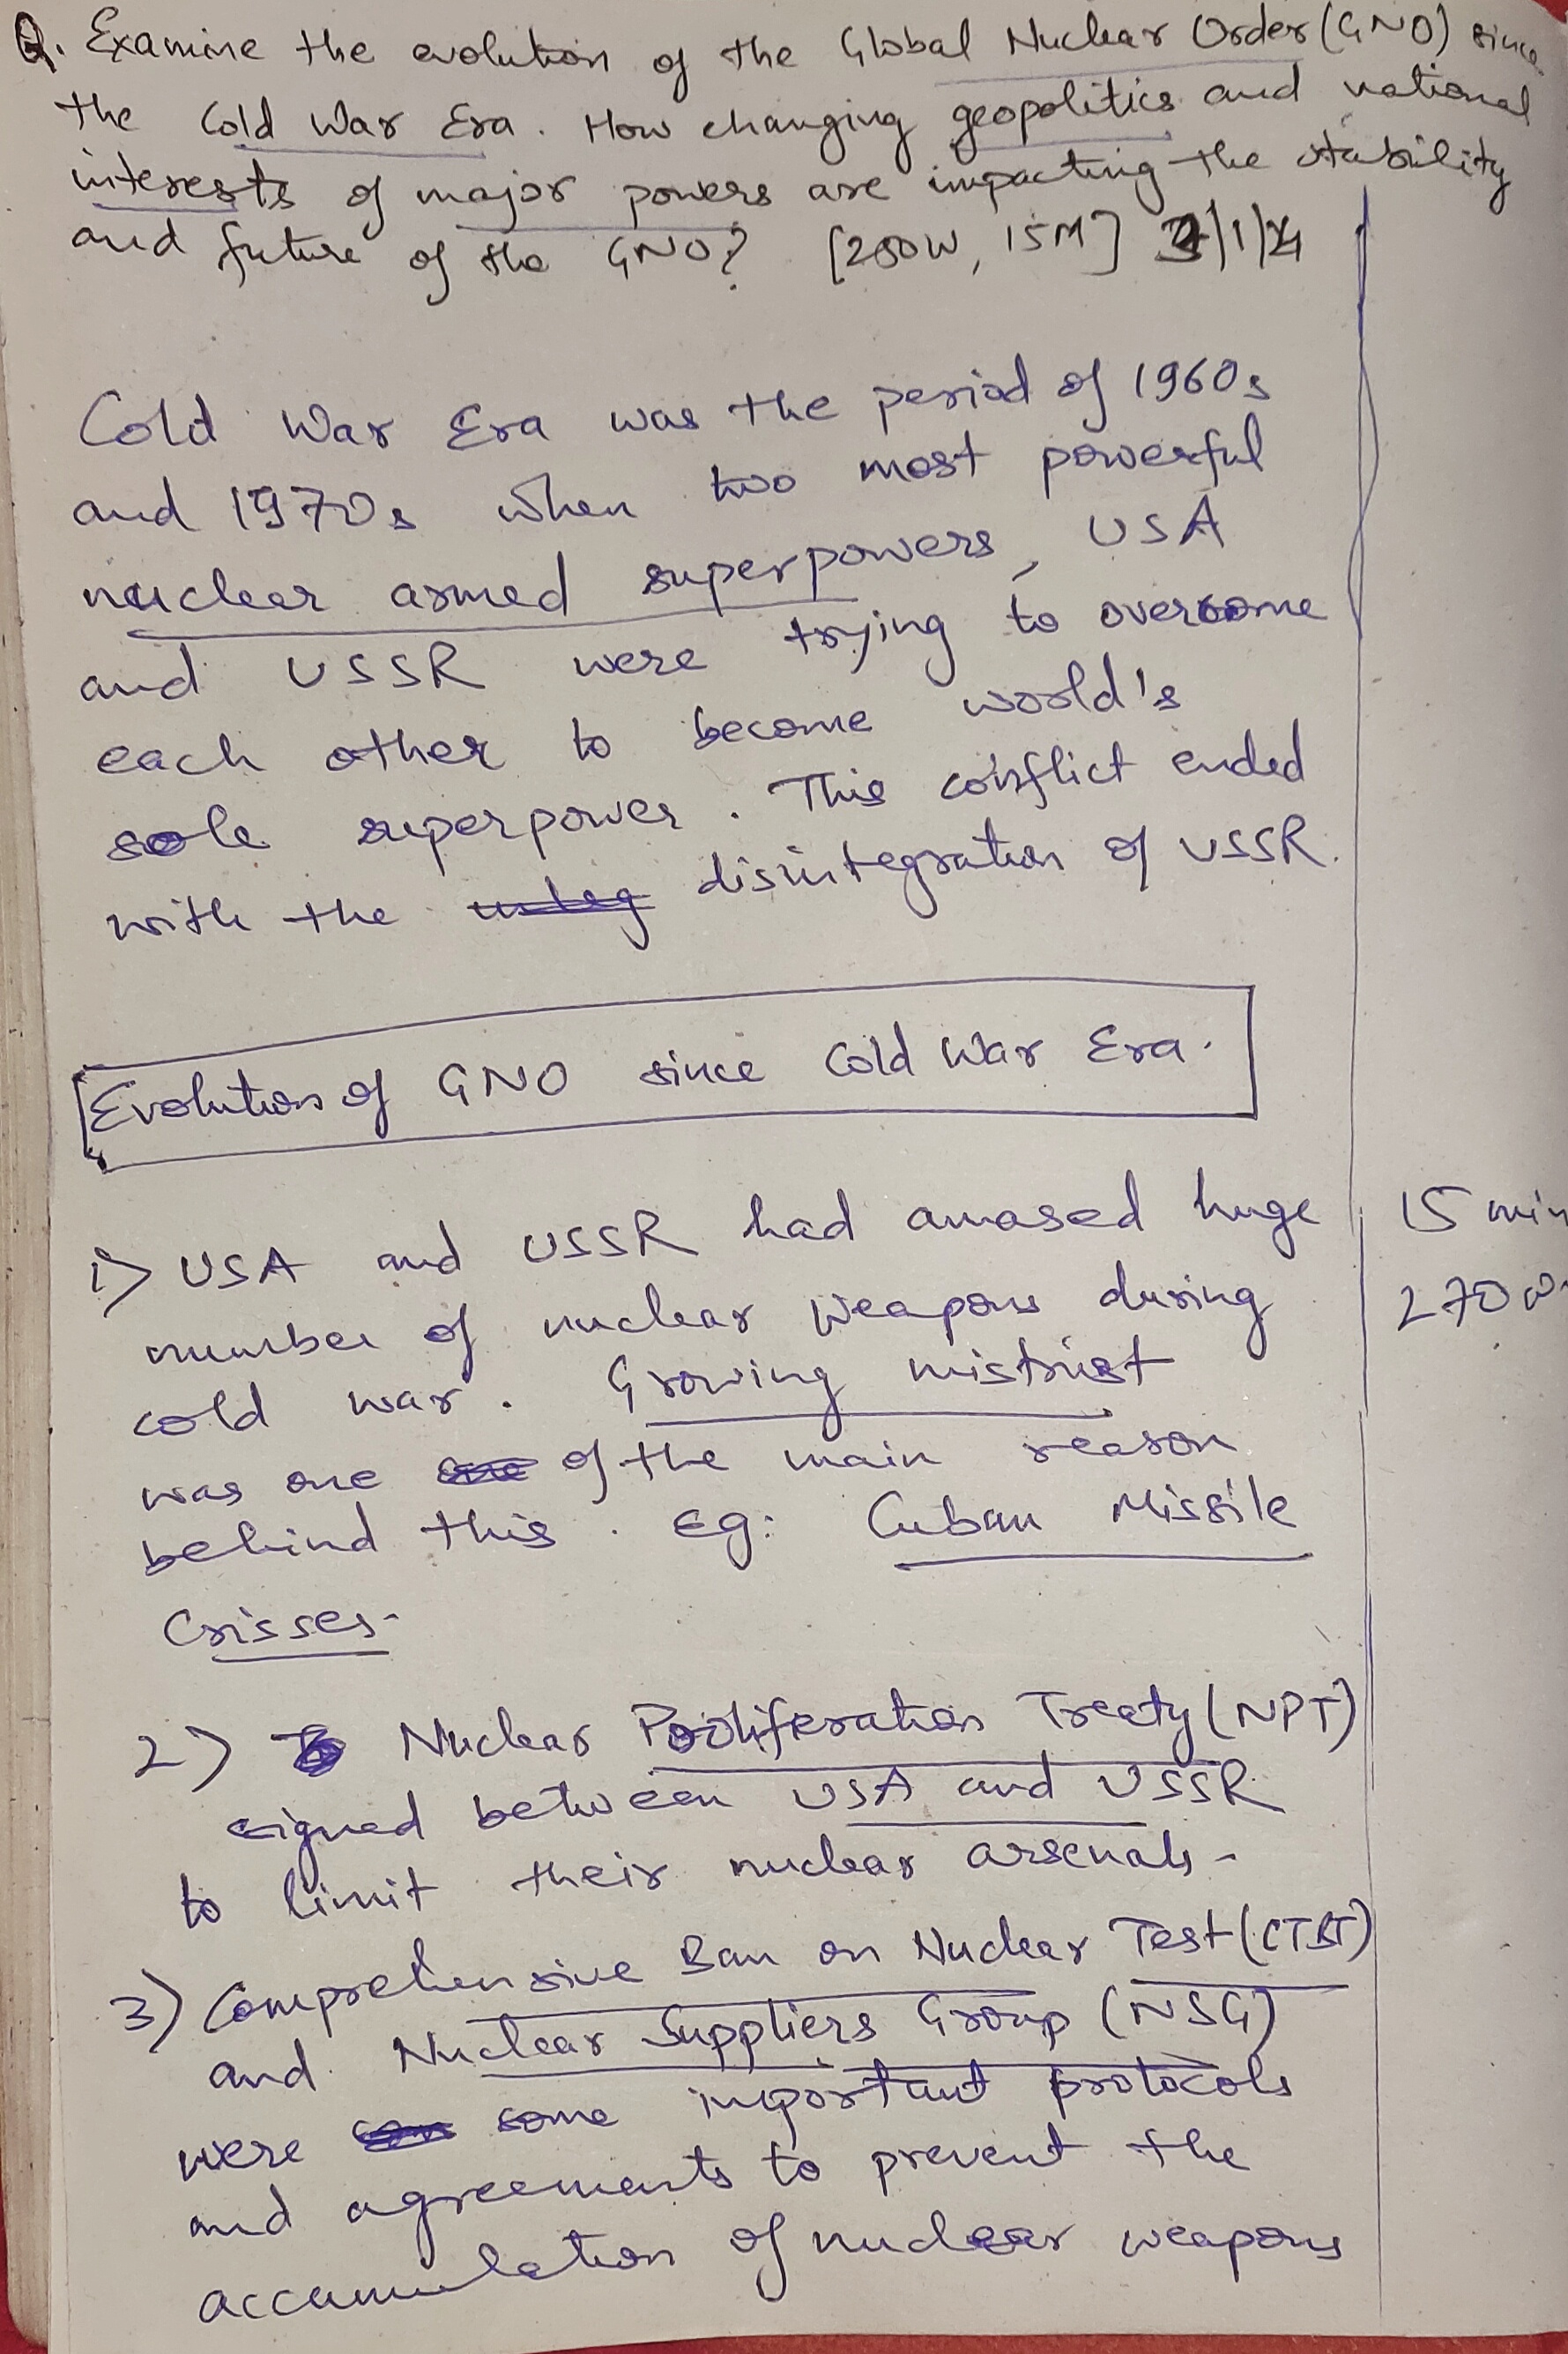 Q. Examine the evolution of the Global Nuclear Order (GNO) since
the Cold War Era. How changing geopolitics and national
interests of major powers are impacting the stability
and future of the GNO? [250W, 15M]
Cold War Era was the period of 1960s
and 1970s when two most powerful
nuclear armed superpowers, USA
and USSR were trying to overcome
each other to become world's
sole superpower. This conflict ended
with the disintegration of USSR.
Evolution of GNO since Cold War Era.
i> USA and USSR had amased huge
number of nuclear weapons during
cold war. Growing mistrust
was one of the main reason
behind this. Eg: Cuban Missile
Crisses.
15 min
270 w
2> Nuclear Proliferation Treaty (NPT)
signed between USA and USSR
to limit their nuclear arsenals.
3) Comprehensive Ban on Nuclear Test (CTBT)
and Nuclear Suppliers Group (NSG)
were some important protocols
and agreements to prevent the
accumulation of nuclear weapons